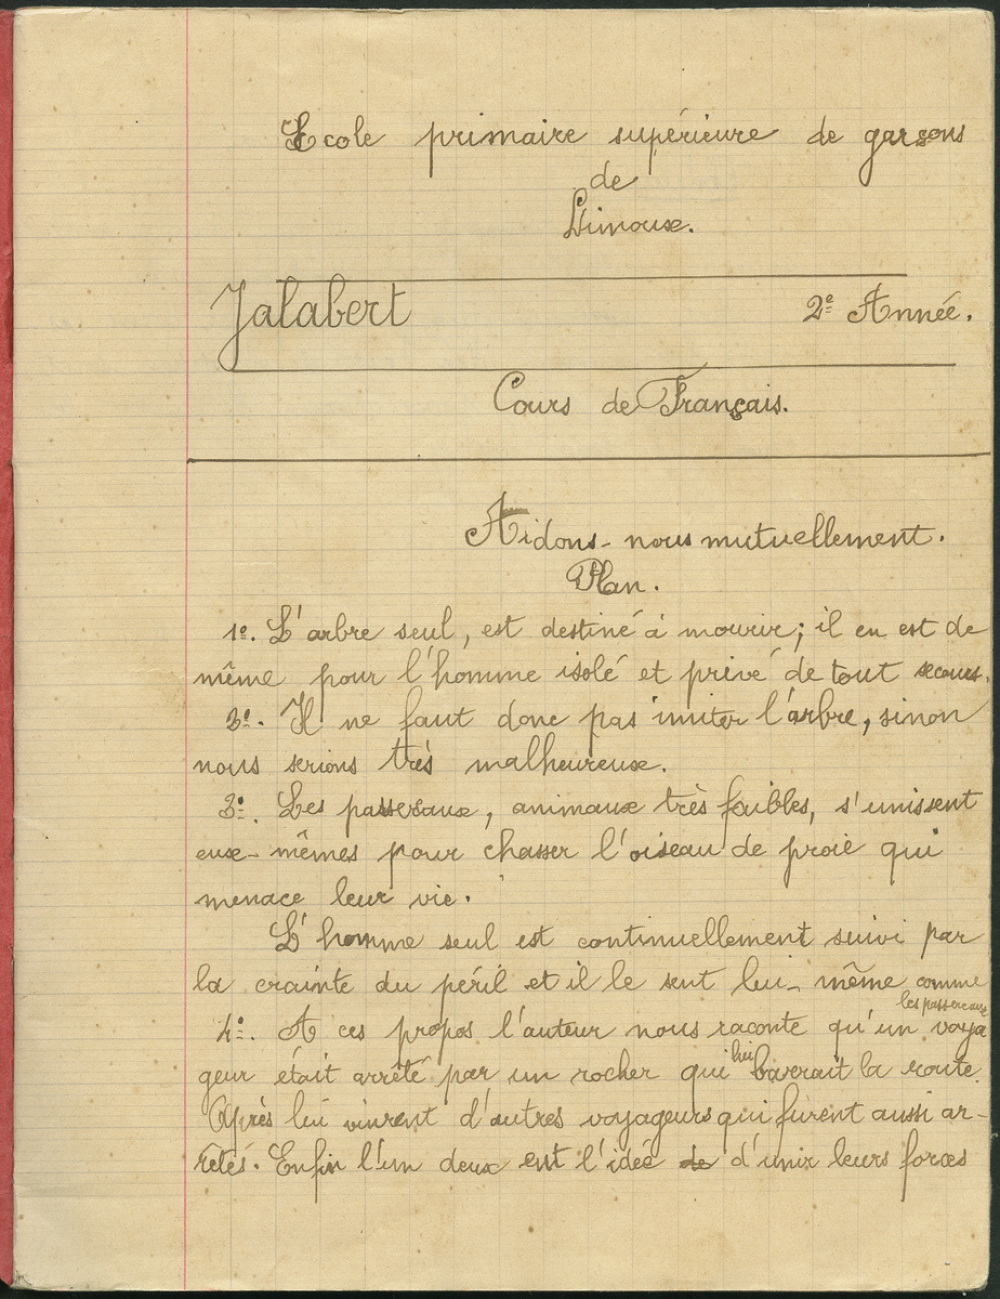 Ecole primaire supérieure de garsons
de
Limoux.
Jalabert 2e Année.
Cours de Français.
Aidons-nous mutuellement.
Plan.
1e. L'arbre seul, est destiné à mourir; il en est de
même pour l'homme isolé et privé de tout secours.
2e. Il ne faut donc pas imiter l'arbre, sinon
nous serions très malheureux.
3e. Les passereaux, animaux très faibles, s'unissent
eux-mêmes pour chasser l'oiseau de proie qui
menace leur vie.
L'homme seul est continuellement suivi par
la crainte du péril et il le sent lui-même comme
les passereaux
4e. A ces propos l'auteur nous raconte qu'un voya
geur était arrêté par un rocher qui lui barrait la route.
Après lui vinrent d'autres voyageurs qui furent aussi ar-
rêtés. Enfin l'un deux eut l'idée de d'unir leurs forces